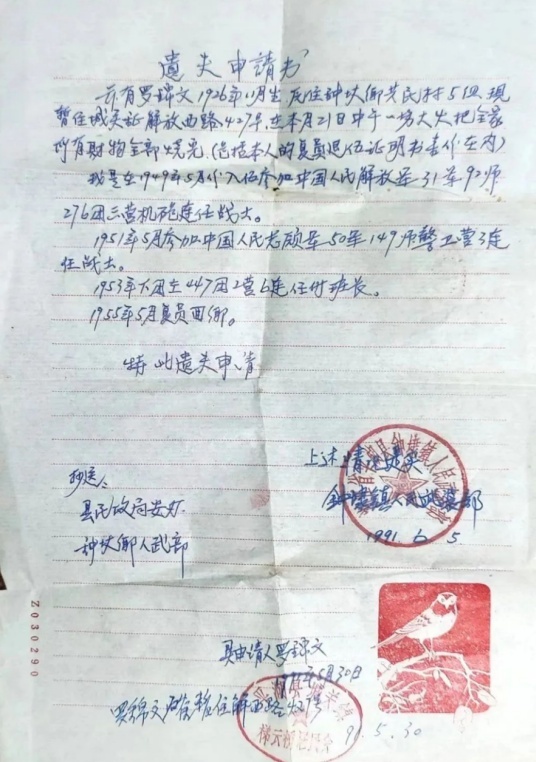 遗失申请书
兹有罗锦文1926年11月生,原住种坎乡共民村5组,现
暂住城关证解放西路427号,在本月21日中午一场大火把全家
所有财物全部烧完(包括本人的复员退伍证明书壹份在内)
我是在1949年5月份入伍参加中国人民解放军31军92师
276团三营机炮连任战士。
1951年5月参加中国人民志愿军50军149师警卫营3连
任战士。
1953年下团在447团2营6连任付班长。
1955年5月复员回乡。
特此遗失申请
上述情况属实
人民武装部
1991.6.5
抄送:
县民政局安
种坎乡人武部
具申请人罗锦文
5月30日
罗锦文 暂住解西路427号
91.5.30
Z030290